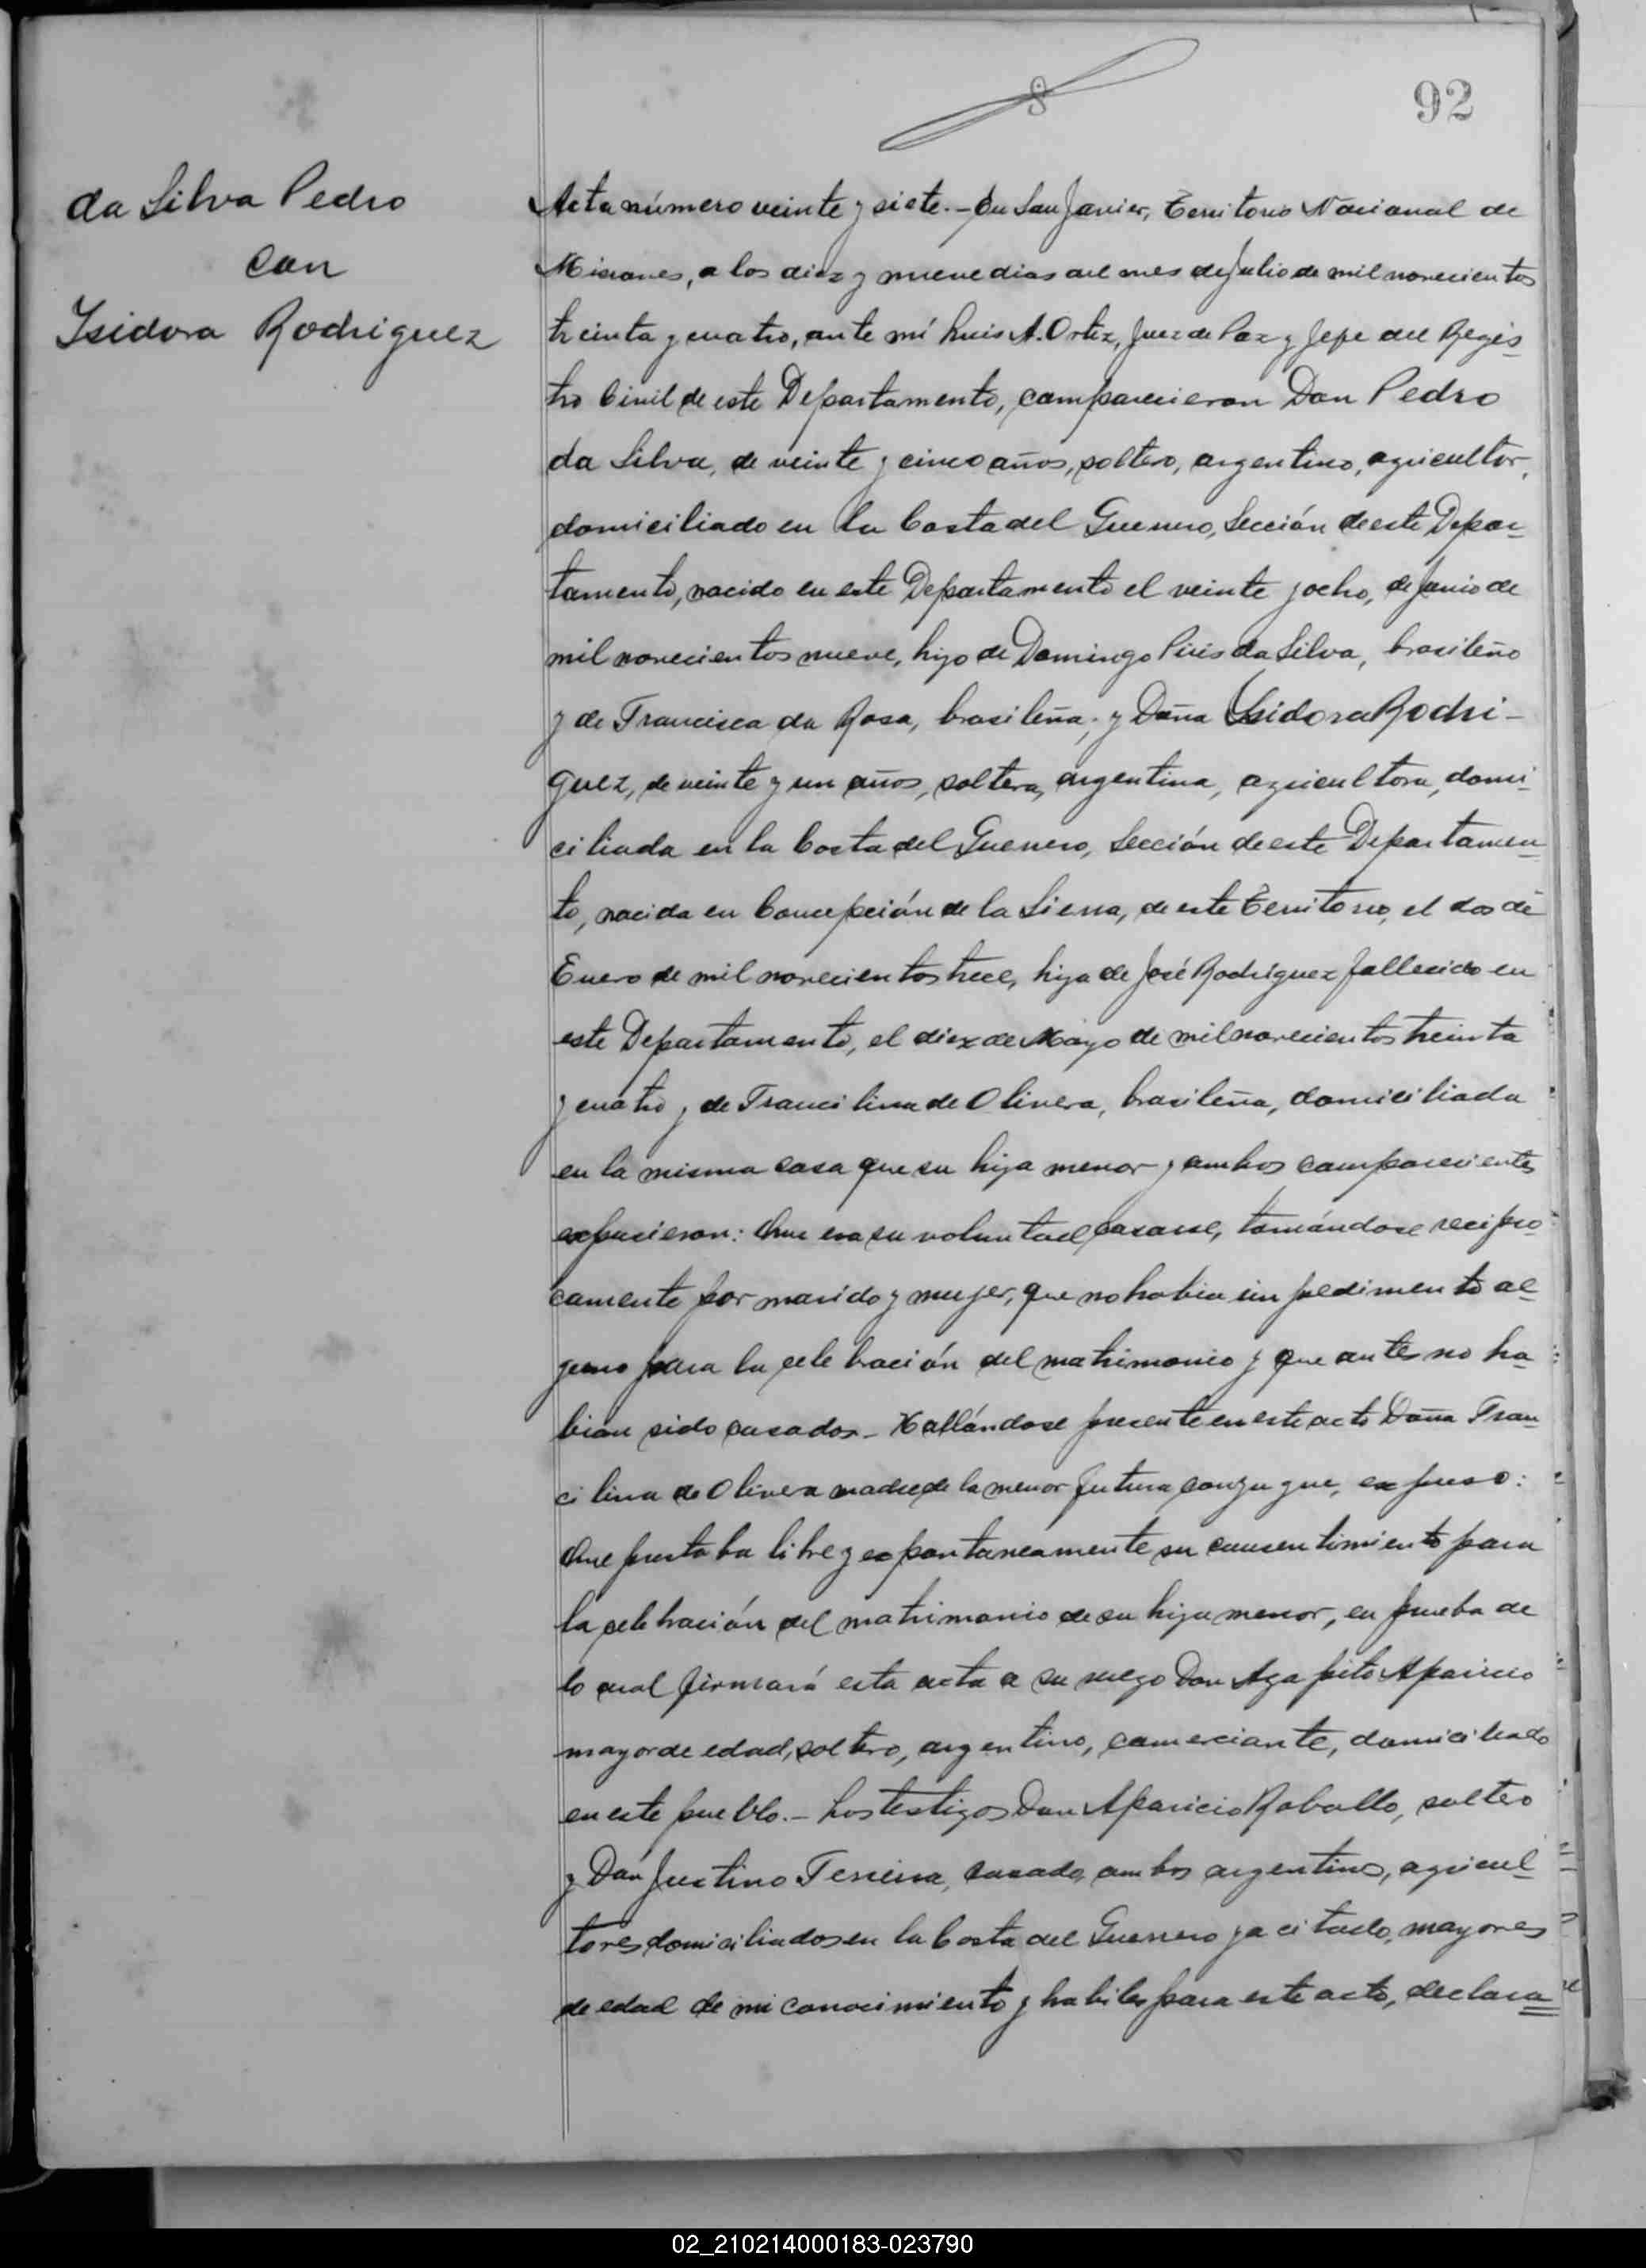 8
92
da Silva Pedro
con
Ysidora Rodriguez
Acta número veinte y siete.- En San Javier, Territorio Nacional de
Misiones, a los diez y nueve dias del mes de Julio de mil novecientos
treinta y cuatro, ante mí Luis A. Ortiz, Juez de Paz y Jefe del Regis-
tro Civil de este Departamento, comparecieron Don Pedro
da Silva, de veinte y cinco años, soltero, argentino, agricultor,
domiciliado en la Costa del Guerrero, Sección de este Depar-
tamento, nacido en este Departamento el veinte y ocho, de Junio de
mil novecientos nueve, hijo de Domingo da Silva, brasileño
y de Francisca da Rosa, brasileña; y Doña Ysidora Rodri-
guez, de veinte y un años, soltera, argentina, agricultora, domi-
ciliada en la Costa del Guerrero, Sección de este Departamen-
to, nacida en Concepción de la Sierra, de este Territorio, el dos de
Enero de mil novecientos trece, hija de José Rodriguez fallecido en
este Departamento, el diez de Mayo de mil novecientos treinta
y cuatro y de Francilina de Olivera, brasileña, domiciliada
en la misma casa que su hija menor y ambos comparecientes
expusieron: Que era su voluntad casarse, tomándose recipro-
camente por marido y mujer, que no habia impedimento al-
guno para la celebración del matrimonio y que antes no ha-
bian sido casados.- Hallándose presente en este acto Doña Fran-
cilina de Olivera madre de la menor futura conyugue, expuso:
Que prestaba libre y espontaneamente su consentimiento para
la celebración del matrimonio de su hija menor, en prueba de
lo cual firmará esta acta a su ruego Don Agapito Aparicio
mayor de edad, soltero, argentino, comerciante, domiciliado
en este pueblo.- Los testigos Don Aparicio Raballo, soltero
y Don Justino Ferreira, casado, ambos argentinos, agricul-
tores domiciliados en la Costa del Guerrero ya citado, mayores
de edad de mi conocimiento y habiles para este acto, declara=
02_210214000183-023790